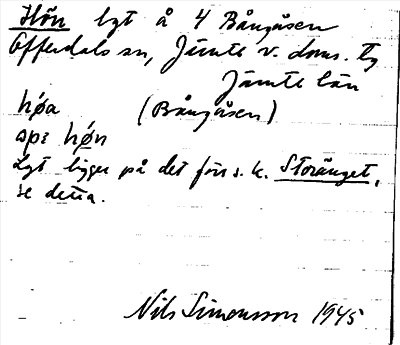 Hön lgt å 4 Bångåsen
Offerdals sn, Jämtl. v. doms. tg
Jämtl. län
høa (Bångåsen)
ape høn
Lgt ligger på det förr s. k. Storänget,
se detta.
Nils Simonsson 1945